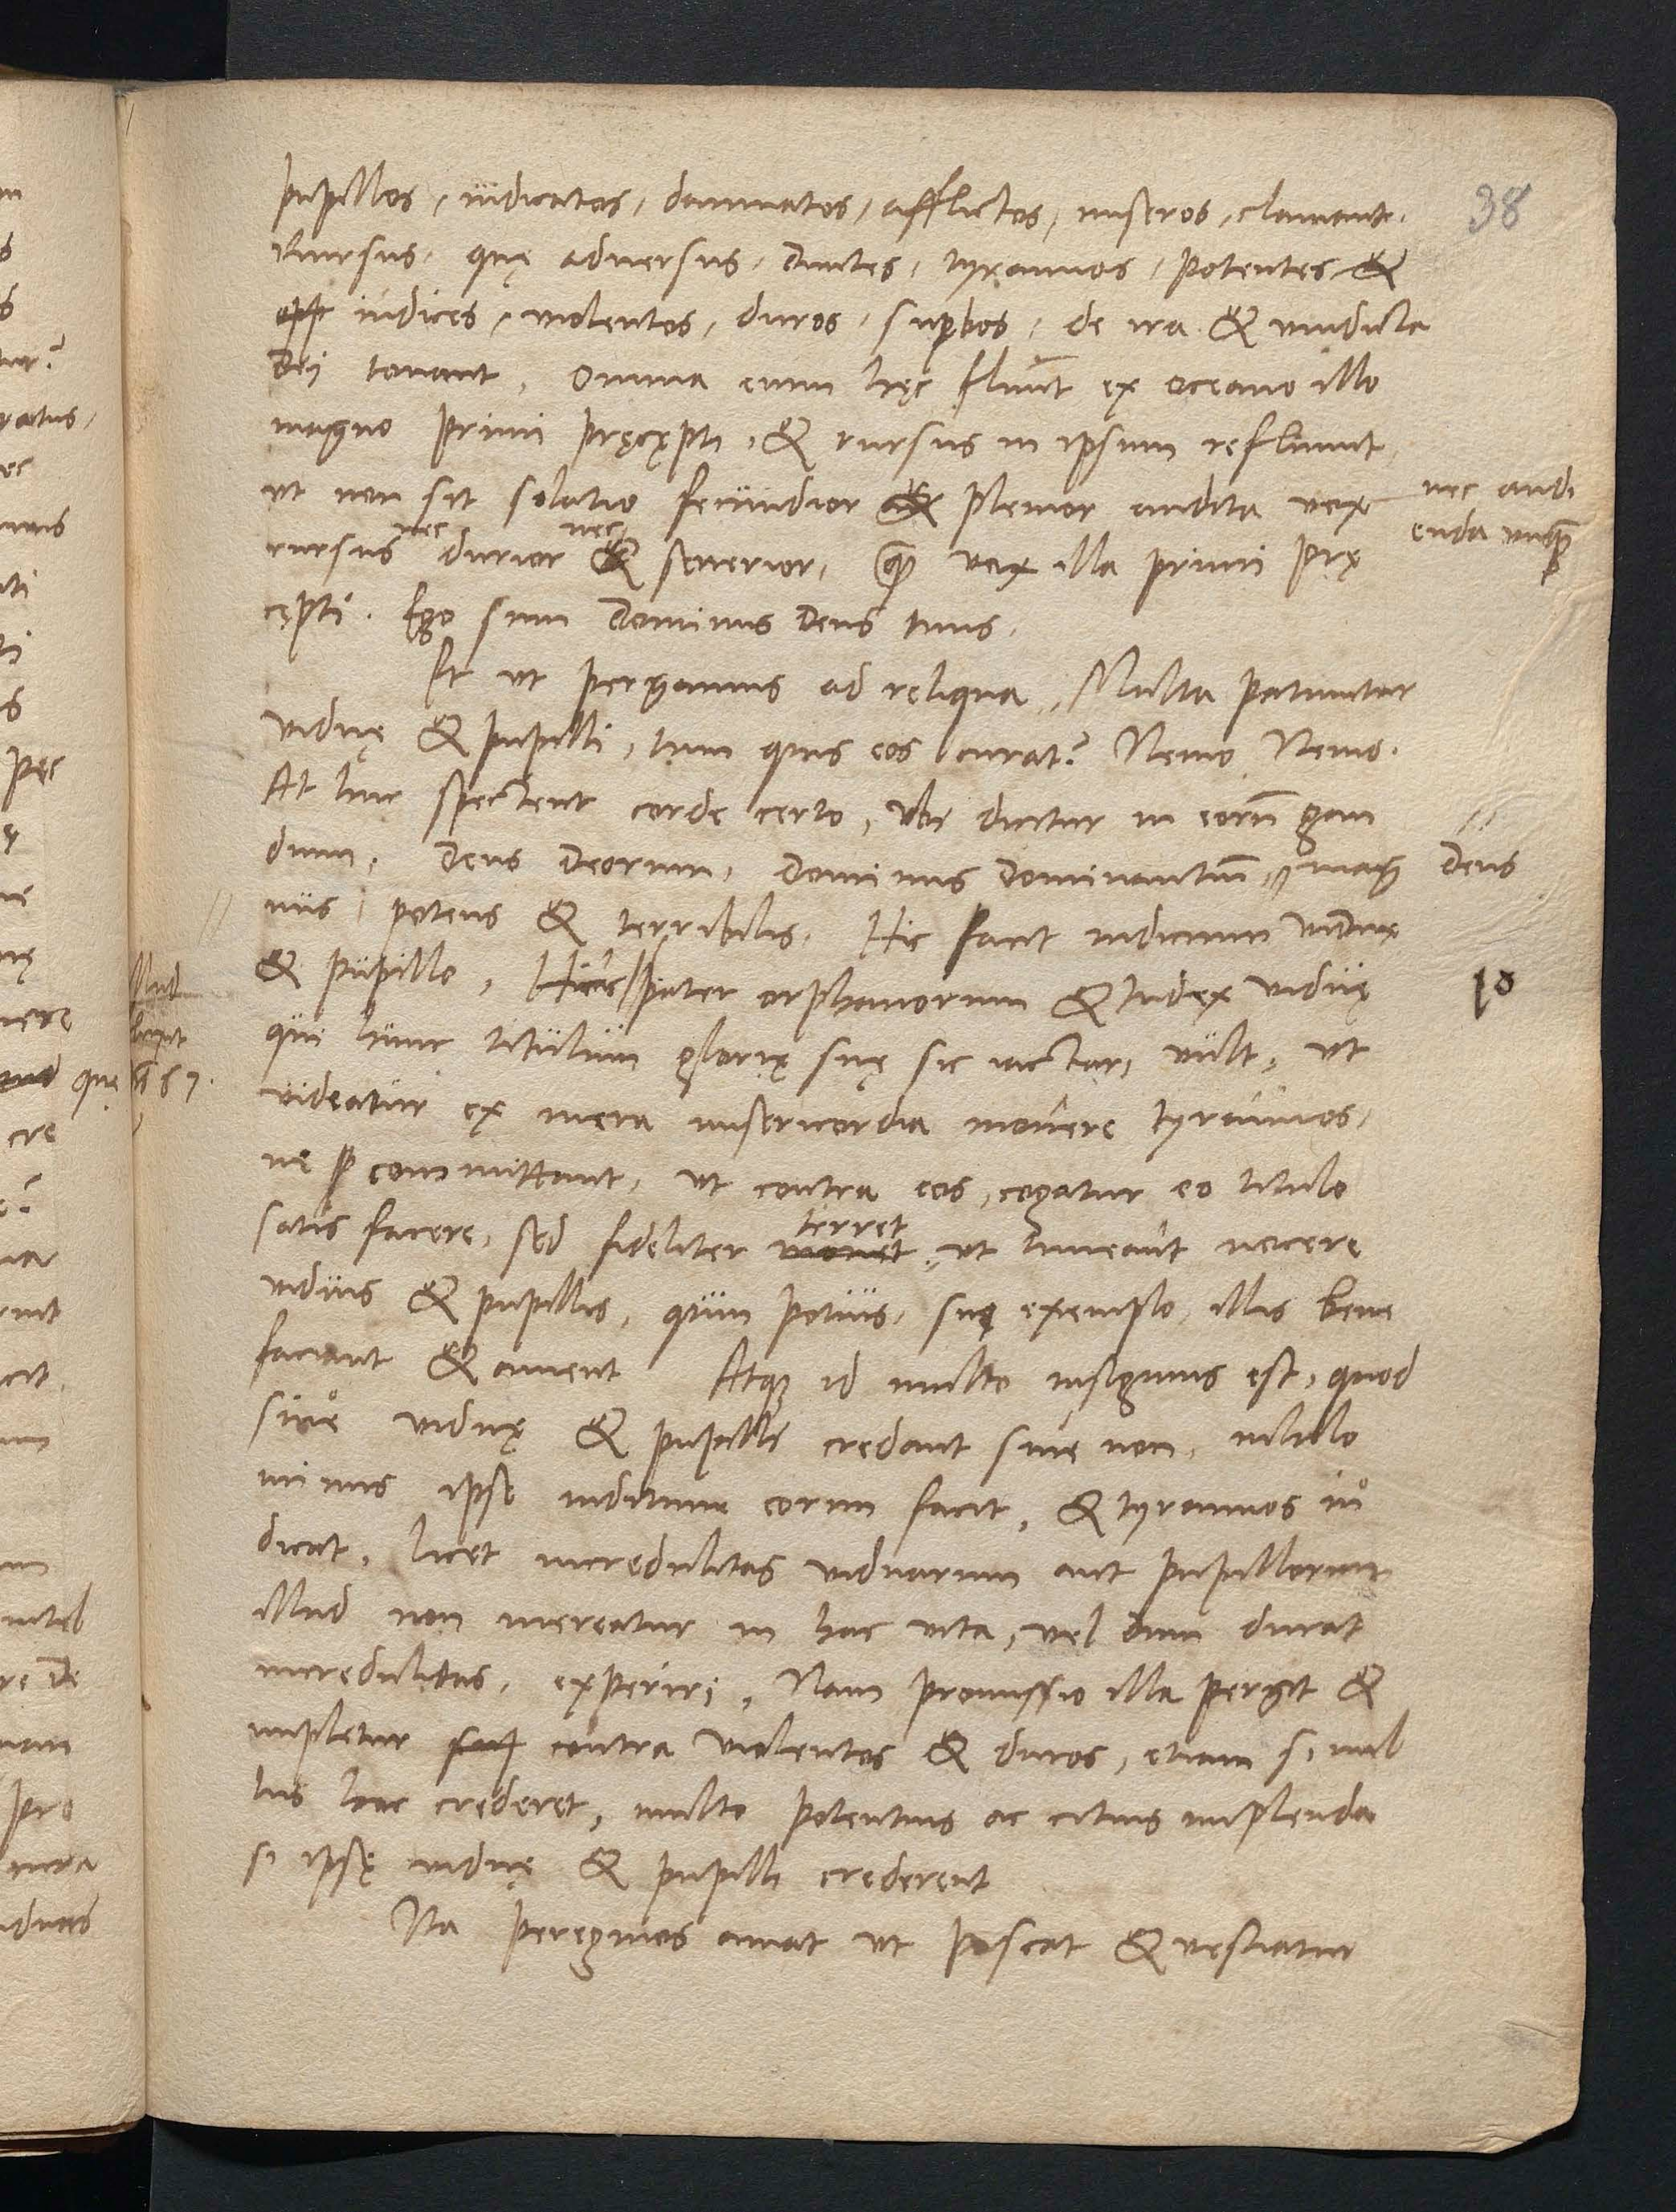 38
pupillos, iudicatos, damnatos, afflictos, miseros, clamant.
Rursus, quę aduersus, diuites, tyrannos, potentes &
iudices, violentos, duros, supbos, de ira & vindicta
Dej tonant, Omnia enim hęc fluunt ex oceano illo
magno primi pręcępti, & rursus in ipsum refluunt,
vt non sit solatio fecundior plenior audita vox nec audi
enda vnquam
nec nec
rursus durior & seuerior, quam vox illa primi prę
cępti. Ego sum Dominus Deus tuus.
Et vt pergamus ad reliqua, Multa patiuntur
viduę & pupilli, tum quis eos curat? Nemo Nemo.
At huc spectent corde certo, vbi dicitur in eorum gau
dium, Deus Deorum, Dominus Dominantium, // mag // Deus
nus potens & terribilis. Hic facit iudicium viduę
& pupillo, Hinc pater orphanorum & Iudex viduę 10
qui hunc titulum glorię suę sic iactari vult, vt
videatur ex mera misericordia mouere tyrannos,
ne committant, vt contra eos, cogatur eo titulo
terret
satis facere, sed fideliter monet, vt timeant nocere
viduis & pupillis, quin potius, suo exemplo, illis bene
faciant & ament Atque id multo insignius est, quod
siue viduę & pupilli credant siue non, nihilo
minus ipse iuditium eorum facit, & tyrannos iu
dicat, licet incredulitas viduarum aut pupillorum
illud non mereatur in hac vita, vel dum durat
incredulitas, experiri, Nam promissio illa pergit &
impletur contra violentos & duros, etiam si nul
lus hoc crederet, multo potentius ac citius implenda
si ipsę viduę & pupilli crederent
Ita peregrinos amat vt pascat & vestiatur